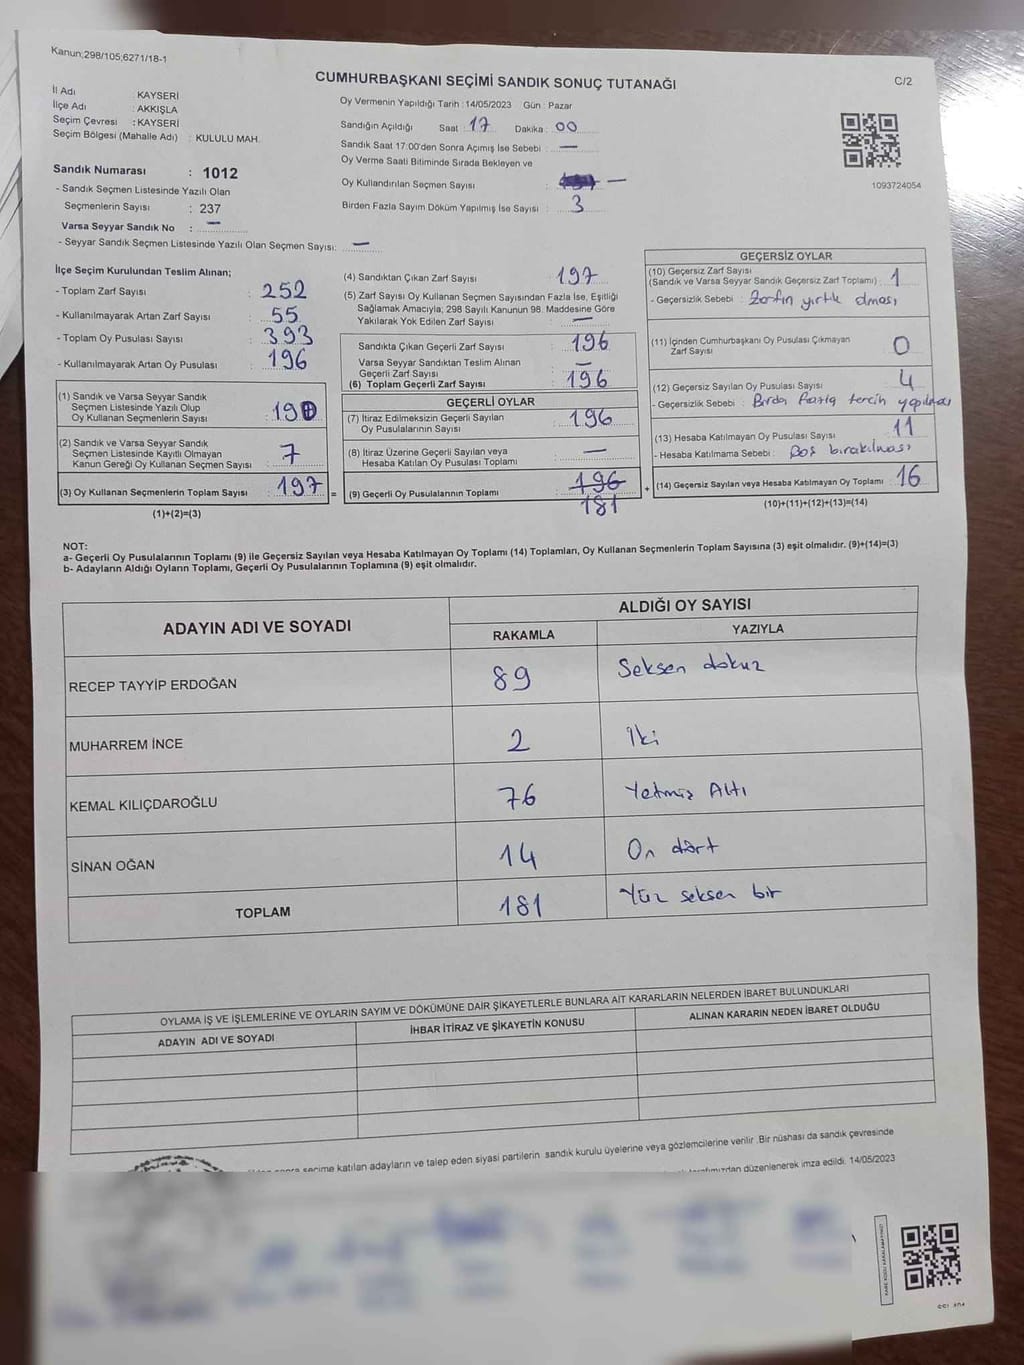 Kanun;298/105;6271/18-1
CUMHURBAŞKANI SEÇİMİ SANDIK SONUÇ TUTANAĞI
C/2
İl Adı : KAYSERİ
İlçe Adı : AKKIŞLA
Seçim Çevresi : KAYSERİ
Seçim Bölgesi (Mahalle Adı) : KULULU MAH.
Sandık Numarası : 1012
- Sandık Seçmen Listesinde Yazılı Olan
Seçmenlerin Sayısı : 237
Varsa Seyyar Sandık No : —
- Seyyar Sandık Seçmen Listesinde Yazılı Olan Seçmen Sayısı: —
Oy Vermenin Yapıldığı Tarih : 14/05/2023 Gün : Pazar
Sandığın Açıldığı Saat : 17 Dakika : 00
Sandık Saat 17:00'den Sonra Açımış İse Sebebi : —
Oy Verme Saati Bitiminde Sırada Bekleyen ve
Oy Kullandırılan Seçmen Sayısı : —
Birden Fazla Sayım Döküm Yapılmış İse Sayısı : 3
1093724054
İlçe Seçim Kurulundan Teslim Alınan;
- Toplam Zarf Sayısı : 252
- Kullanılmayarak Artan Zarf Sayısı : 55
- Toplam Oy Pusulası Sayısı : 393
- Kullanılmayarak Artan Oy Pusulası : 196
(1) Sandık ve Varsa Seyyar Sandık
Seçmen Listesinde Yazılı Olup
Oy Kullanan Seçmenlerin Sayısı : 190
(2) Sandık ve Varsa Seyyar Sandık
Seçmen Listesinde Kayıtlı Olmayan
Kanun Gereği Oy Kullanan Seçmen Sayısı : 7
(3) Oy Kullanan Seçmenlerin Toplam Sayısı : 197 =
(1)+(2)=(3)
(4) Sandıktan Çıkan Zarf Sayısı : 197
(5) Zarf Sayısı Oy Kullanan Seçmen Sayısından Fazla İse, Eşitliği
Sağlamak Amacıyla; 298 Sayılı Kanunun 98. Maddesine Göre
Yakılarak Yok Edilen Zarf Sayısı : —
Sandıkta Çıkan Geçerli Zarf Sayısı : 196
Varsa Seyyar Sandıktan Teslim Alınan
Geçerli Zarf Sayısı : —
(6) Toplam Geçerli Zarf Sayısı : 196
GEÇERLİ OYLAR
(7) İtiraz Edilmeksizin Geçerli Sayılan
Oy Pusulalarının Sayısı : 196
(8) İtiraz Üzerine Geçerli Sayılan veya
Hesaba Katılan Oy Pusulası Toplamı : —
(9) Geçerli Oy Pusulalarının Toplamı : 196 +
181
GEÇERSİZ OYLAR
(10) Geçersiz Zarf Sayısı
(Sandık ve Varsa Seyyar Sandık Geçersiz Zarf Toplamı) : 1
- Geçersizlik Sebebi : Zarfın yırtık olması
(11) İçinden Cumhurbaşkanı Oy Pusulası Çıkmayan
Zarf Sayısı : 0
(12) Geçersiz Sayılan Oy Pusulası Sayısı : 4
- Geçersizlik Sebebi : Birden fazla tercih yapılması
(13) Hesaba Katılmayan Oy Pusulası Sayısı : 11
- Hesaba Katılmama Sebebi : Boş bırakılması
(14) Geçersiz Sayılan veya Hesaba Katılmayan Oy Toplamı : 16
(10)+(11)+(12)+(13)=(14)
NOT:
a- Geçerli Oy Pusulalarının Toplamı (9) ile Geçersiz Sayılan veya Hesaba Katılmayan Oy Toplamı (14) Toplamları, Oy Kullanan Seçmenlerin Toplam Sayısına (3) eşit olmalıdır. (9)+(14)=(3)
b- Adayların Aldığı Oyların Toplamı, Geçerli Oy Pusulalarının Toplamına (9) eşit olmalıdır.
ADAYIN ADI VE SOYADI
ALDIĞI OY SAYISI
RAKAMLA YAZIYLA
RECEP TAYYİP ERDOĞAN 89 Seksen dokuz
MUHARREM İNCE 2 İki
KEMAL KILIÇDAROĞLU 76 Yetmiş Altı
SİNAN OĞAN 14 On dört
TOPLAM 181 Yüz seksen bir
OYLAMA İŞ VE İŞLEMLERİNE VE OYLARIN SAYIM VE DÖKÜMÜNE DAİR ŞİKAYETLERLE BUNLARA AİT KARARLARIN NELERDEN İBARET BULUNDUKLARI
ADAYIN ADI VE SOYADI İHBAR İTİRAZ VE ŞİKAYETİN KONUSU ALINAN KARARIN NEDEN İBARET OLDUĞU
sonra seçime katılan adayların ve talep eden siyasi partilerin sandık kurulu üyelerine veya gözlemcilerine verilir. Bir nüshası da sandık çevresinde
düzenlenerek imza edildi. 14/05/2023